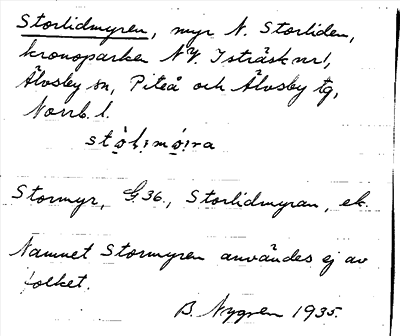 Storlidmyren, myr N. Storliden,
kronoparken N.V. Isträsk nr 1,
Älvsby sn, Piteå och Älvsby tg,
Norrb. l.
Stormyr, G. 36., Storlidmyran, ek.
Namnet Stormyren användes ej av
folket.
B. Nygren 1935.